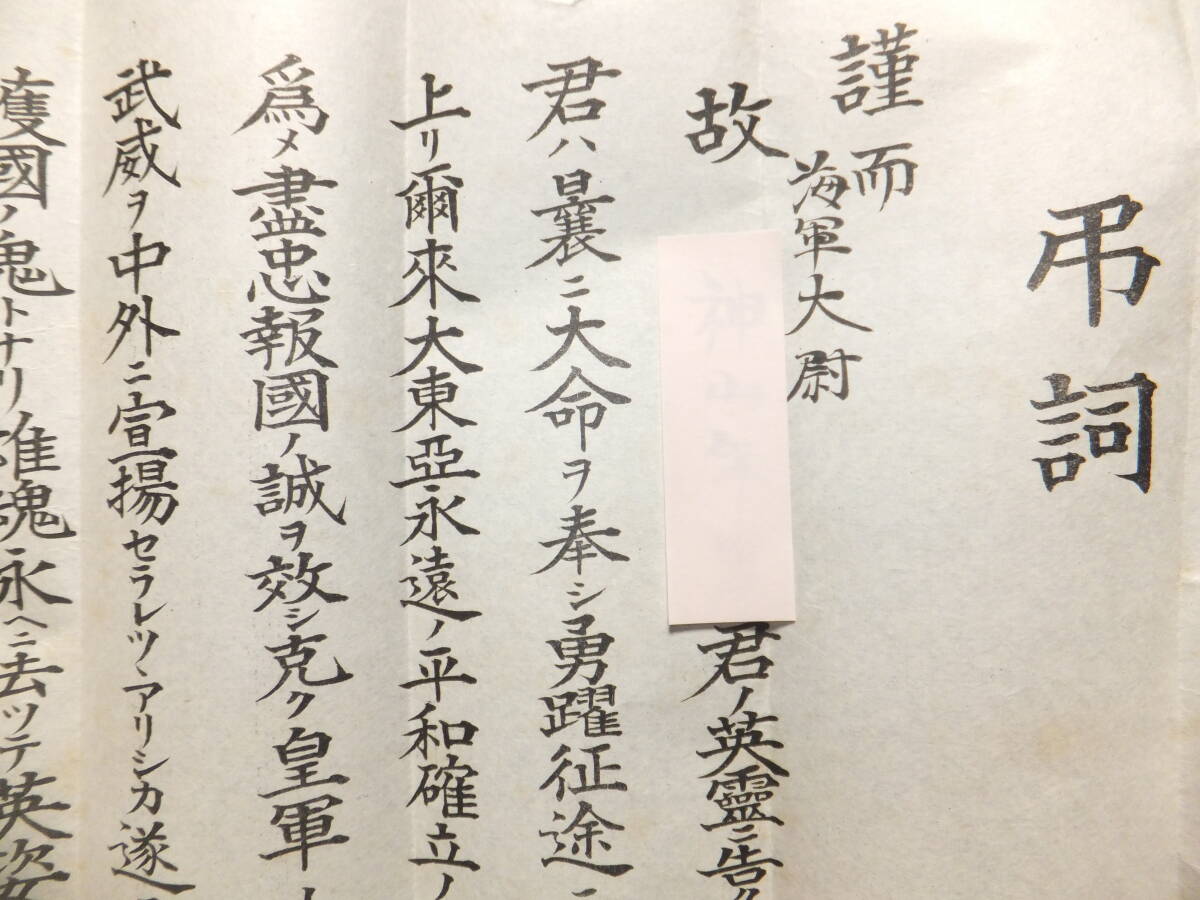 弔詞
謹而
海軍大尉
故
君ノ英靈ニ告ク
君ハ曩ニ大命ヲ奉シ勇躍征途ニ
上リ爾來大東亞永遠ノ平和確立ノ
爲メ盡忠報國ノ誠ヲ效シ克ク皇軍ノ
武威ヲ中外ニ宣揚セラレツヽアリシカ遂ニ
護國ノ鬼トナリ唯魂永ヘニ去ツテ英姿